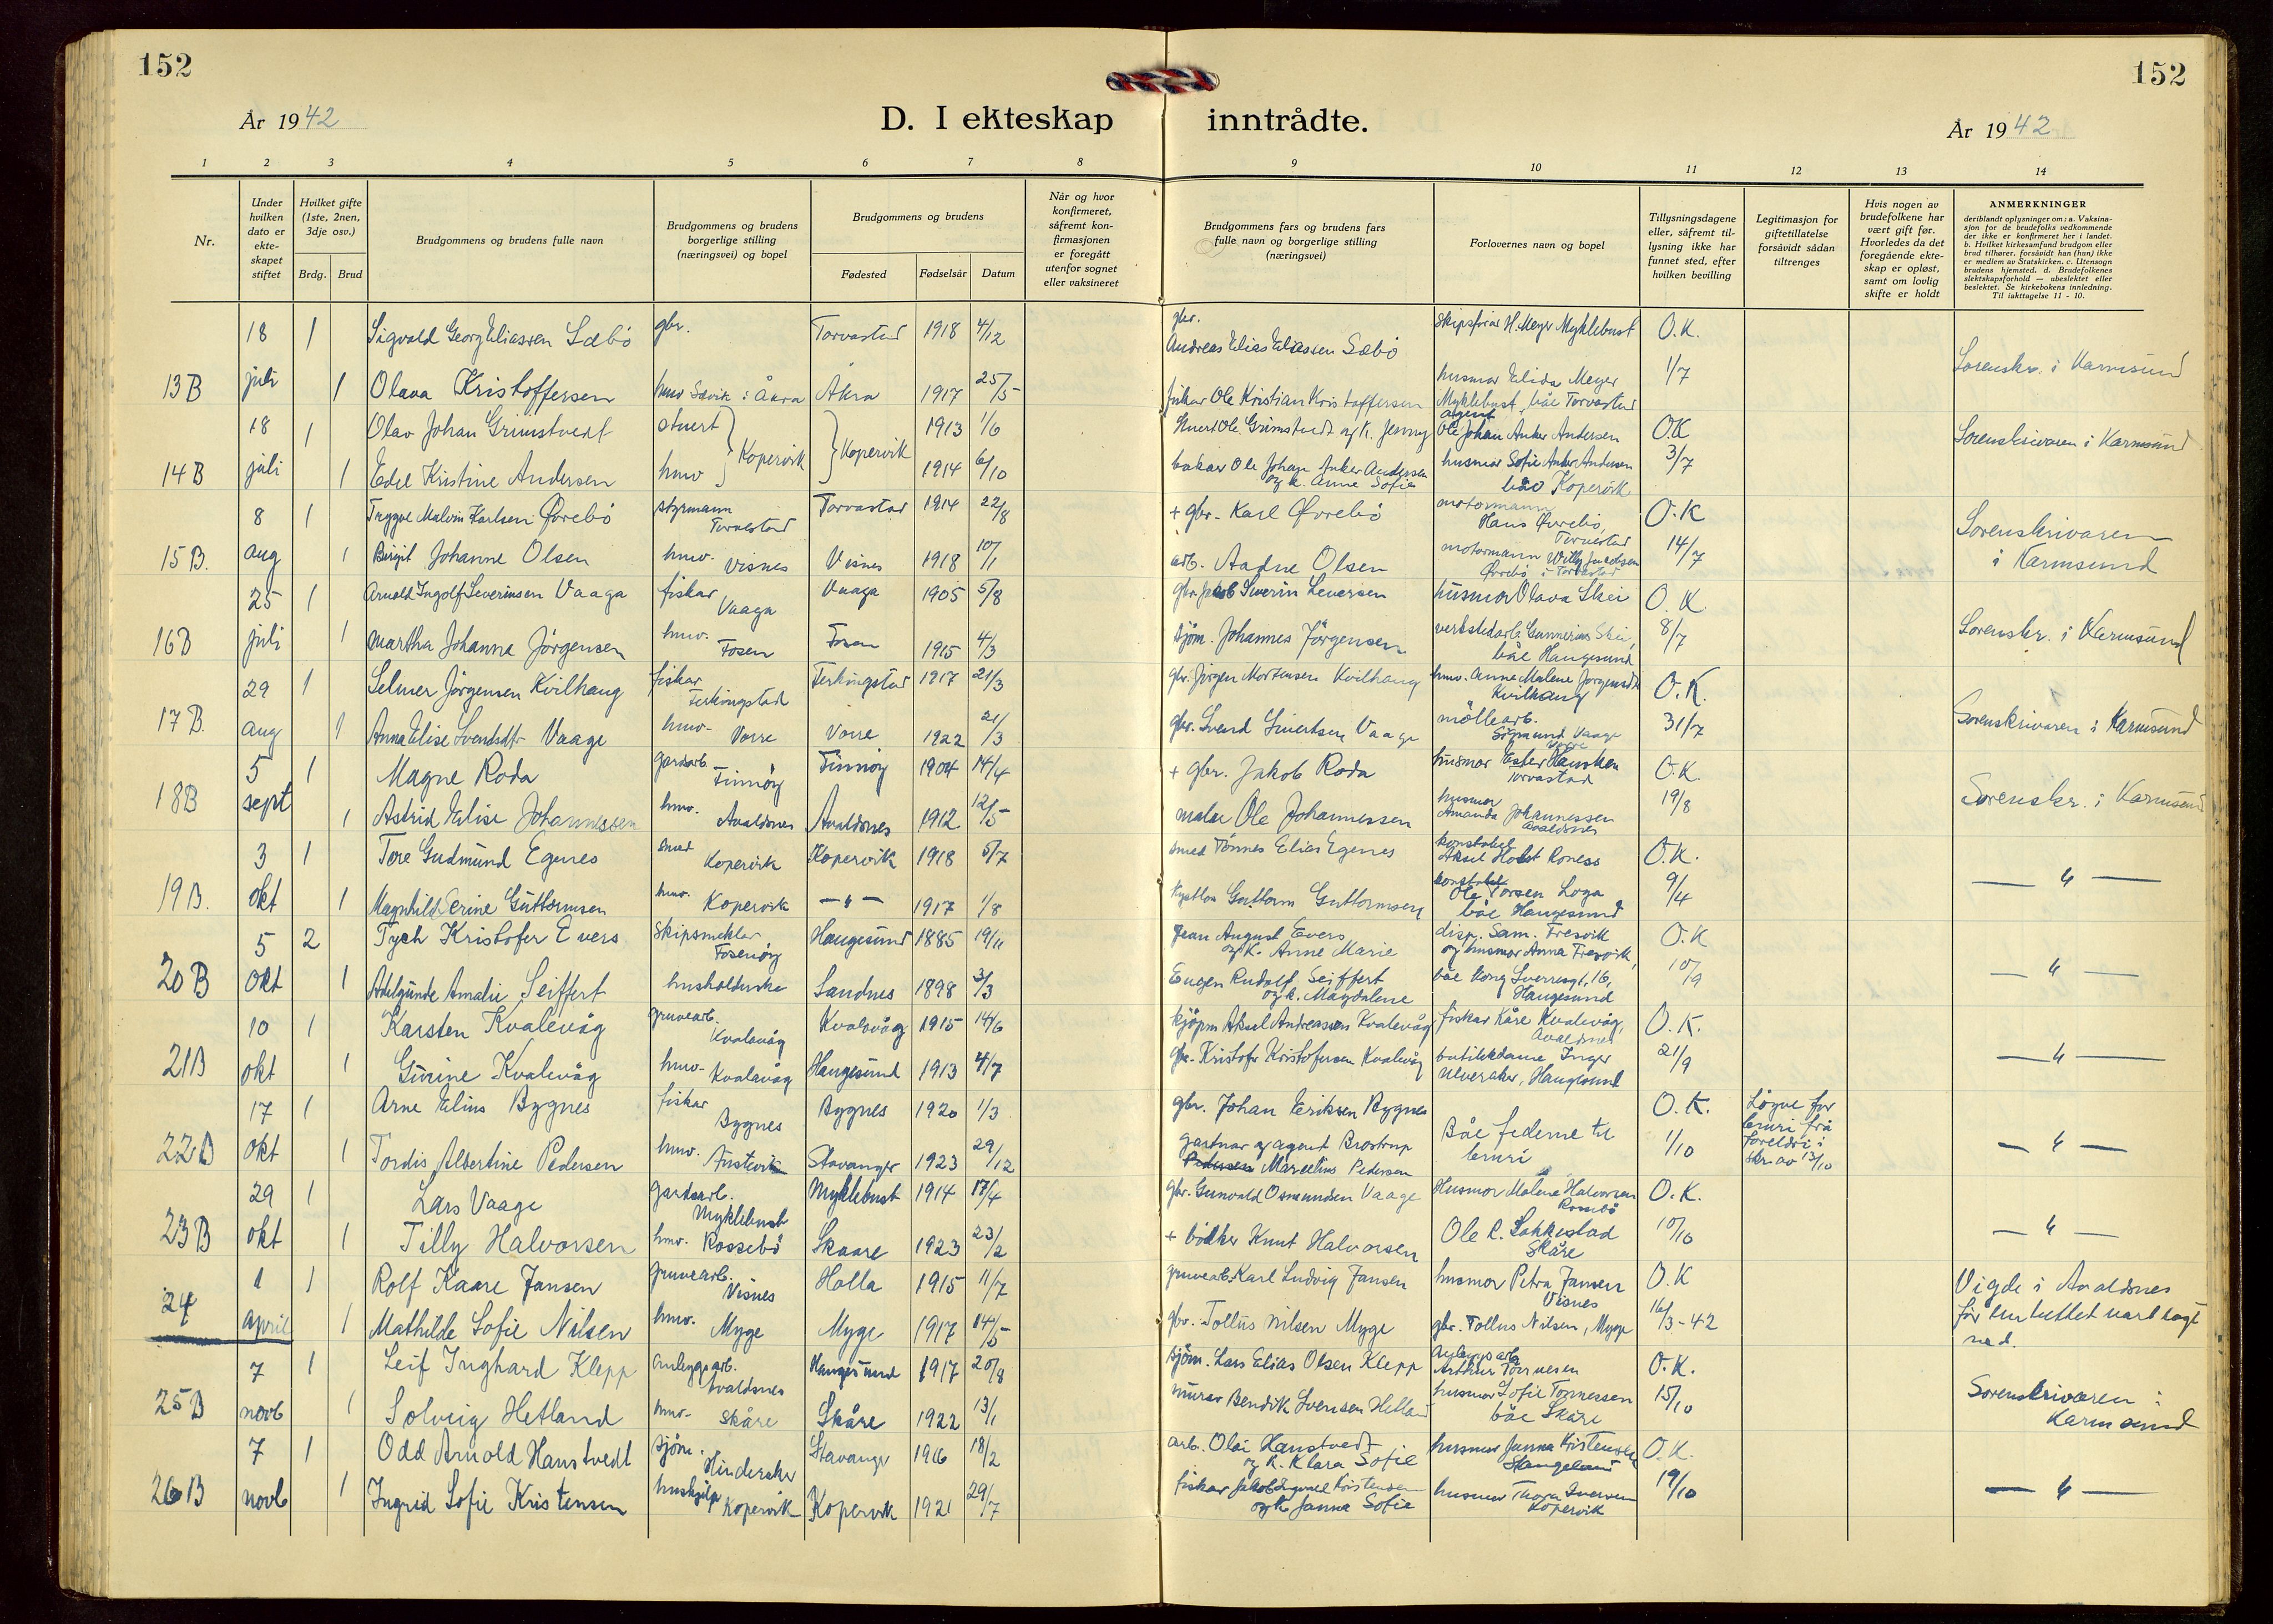 152
152
År 1942
D. I ekteskap inntrådte.
År 1942
1 2 3 4 5 6 7 8 9 10 11 12 13 14
Nr.
Under hvilken dato er ekte-skapet stiftet
Hvilket gifte (1ste, 2nen, 3dje osv.)
Brdg. Brud
Brudgommens og brudens fulle navn
Brudgommens og brudens borgerlige stilling (næringsvei) og bopel
Brudgommens og brudens
Fødested Fødselsår Datum
Når og hvor konfirmeret, såfremt kon-firmasjonen er foregått utenfor sognet eller vaksineret
Brudgommens fars og brudens fars fulle navn og borgerlige stilling (næringsvei)
Forlovernes navn og bopel
Tillysningsdagene eller, såfremt til-lysning ikke har funnet sted, efter hvilken bevilling
Legitimasjon for giftetillatelse forsåvidt sådan tiltrenges
Hvis nogen av brudefolkene har vært gift før. Hvorledes da det foregående ekte-skap er opløst, samt om lovlig skifte er holdt
ANMERKNINGER
deriblandt oplysninger om: a. Vaksina-sjon for de brudefolks vedkommende der ikke er konfirmeret her i landet. b. Hvilket kirkesamfund brudgom eller brud tilhører, forsåvidt han (hun) ikke er medlem av Statskirken. c. Utensogn brudens hjemsted. d. Brudefolkenes slektskapsforhold — ubeslektet eller beslektet. Se kirkebokens innledning. Til iakttagelse 11 - 10.
18 1 Sigvald Georg Eliassen Sæbö gbr. Torvastad 1918 4/12 gbr. Andreas Elias Eliassen Sæbö Skipsförar H. Meyer Myklebust O.K.
13B juli 1 Olava Kristoffersen hmv Sævik i Åkra Åkra 1917 25/5 fiskar Ole Kristian Kristoffersen husmor Elida Meyer Myklebust, båe Torvastad 1/7 Sorenskr. i Karmsund
18 1 Olav Johan Grimstvedt stuert Kopervik Kopervik 1913 1/6 Stuert Ole Grimstvedt og k. Jenny agent Ole Johan Anker Andersen O.K
14B juli 1 Edel Kristine Andersen hmv 1914 6/10 bakar Ole Johan Anker Andersen og k. Anne Sofie husmor Sofie Anker Andersen båe Kopervik 3/7 Sorenskrivaren i Karmsund
8 1 Trygve Malvin Karlsen Øvrebö styrmann Torvastad Torvastad 1914 22/8 + gbr. Karl Øvrebö motormann Hans Øvrebö, Torvestad O.K
15B. aug 1 Birgit Johanne Olsen hmv. Visnes Visnes 1918 10/1 arb. Aadne Olsen motormann Willy Jakobsen Øvrebö i Torvastad 14/7 Sorenskrivaren i Karmsund
25 1 Arnold Ingolf Severinsen Vaaga fiskar Vaaga Vaaga 1905 5/8 gbr. Jakob Severin Seversen husmor Olava Skei O.K.
16B juli 1 Martha Johanna Jörgensen hmv. Fosen Fosen 1915 4/3 sjöm. Johannes Jörgensen verkstedarb. Gunnerius Skei, båe Haugesund 8/7 Sorenskr. i Karmsund
29 1 Selmer Jörgensen Kvilhaug fiskar Ferkingstad Ferkingstad 1917 21/3 gbr. Jörgen Mortensen Kvilhaug hmv. Anne Malene Jörgensdtr Kvilhaug O.K.
17B. aug 1 Anna Elise Svendsdtr Vaage hmv. Vorre Vorre 1922 21/3 gbr. Svend Sivertsen Vaage möllearb. Sigmund Vaage Vorre 31/7 Sorenskrivaren i Karmsund
5 1 Magne Roda gardarb Finnöy Finnöy 1904 14/4 + gbr. Jakob Roda husmor Ester Hausken Torvastad O.K.
18B sept 1 Astrid Elise Johannessen hmv. Avaldsnes Avaldsnes 1912 12/5 malar Ole Johannessen husmor Amanda Johannessen Avaldsnes 19/8 Sorenskr. i Karmsund
3 1 Tore Gudmund Egenes smed Kopervik Kopervik 1918 5/7 smed Tönnes Elias Egenes konstabel Aksel Holst Roness O.K.
19B. okt 1 Magnhild Serine Guttormsen hmv. Kopervik — " — 1917 1/8 Guttorm Guttormsen konstabel Ole Torsen Loga båe Haugesund 9/4 — " —
5 2 Tych Kristofer Evers Skipsmeklar Fosenöy Haugesund 1885 19/11 Jean August Evers og k. Anne Marie disp. Sam. Tresvik og husmor Anna Tresvik, O.K
20B okt 1 Adelgunde Amalie Seiffert husholderske Sandnes 1898 3/3 Eugen Rudolf Seiffert og k. Magdalene båe Kong Sverresgt. 16, Haugesund 10/9 — " —
10 1 Karsten Kvalevåg gruvearb. Kvalavåg Kvalavåg 1915 14/6 kjöpm Aksel Andreassen Kvalevåg fiskar Kåre Kvalevåg, Avaldsnes O.K.
21B okt 1 Gurine Kvalevåg hmv. Kvalavåg Haugesund 1913 4/7 gbr. Kristofer Kristofersen Kvalevåg butikkdame Inger Ulveraker, Haugesund 21/9 — " —
17 1 Arne Elius Bygnes fiskar Bygnes Bygnes 1920 1/3 gbr. Johan Eriksen Bygnes Båe federne til bruri O.K. Løyve for bruri frå foreldri i skr. av 13/10
22B okt 1 Tordis Albertine Pedersen hmv. Stavanger 1923 29/12 gartnar og agent Brostrup Pedersen Marcelius Pedersen 1/10 — " —
29 1 Lars Vaage gardsarb. Myklebust Myklebust 1914 17/4 gbr. Gunvald Osmundsen Vaage Husmor Malene Halvorsen Rossebö O.K.
23B okt 1 Tilly Halvorsen hmv. Rossebö Skaare 1923 23/2 + bödker Knut Halvorsen Ole R. Sakkestad Skåre 10/10 — " —
1 1 Rolf Kaare Jansen gruvearb. Visnes Holla 1915 11/7 gruvearb. Karl Ludvig Jansen husmor Petra Jansen Visnes O.K
24 april 1 Mathilde Sofie Nilsen hmv. Myge Myge 1917 14/5 gbr. Tollus Nilsen Myge gbr. Tollus Nilsen, Myge 16/3-42 Vigde i Avaldsnes för embettet vart lagt ned.
7 1 Leif Inghard Klepp anleggsarb. Avaldsnes Haugesund 1917 20/8 sjöm. Lars Elias Olsen Klepp Anleggsarb. Arthur Tönnesen O.K.
25B novb 1 Solveig Hetland hmv. Skåre Skåre 1922 13/1 murar Bendik Svensen Hetland husmor Sofie Tönnessen båe Skåre 15/10 Sorenskrivaren i Karmsund
7 1 Odd Arnold Hanstvedt sjöm. Hinderaker Stavanger 1916 18/2 arb. Olai Hanstvedt og k. Klara Sofie husmor Janna Kristensen Stangeland O.K.
26B novb 1 Ingrid Sofie Kristensen hushjelp Kopervik Kopervik 1921 29/7 fiskar Jakob Kristensen og k Janna Sofie husmor Thora Iversen Kopervik 19/10 — " —